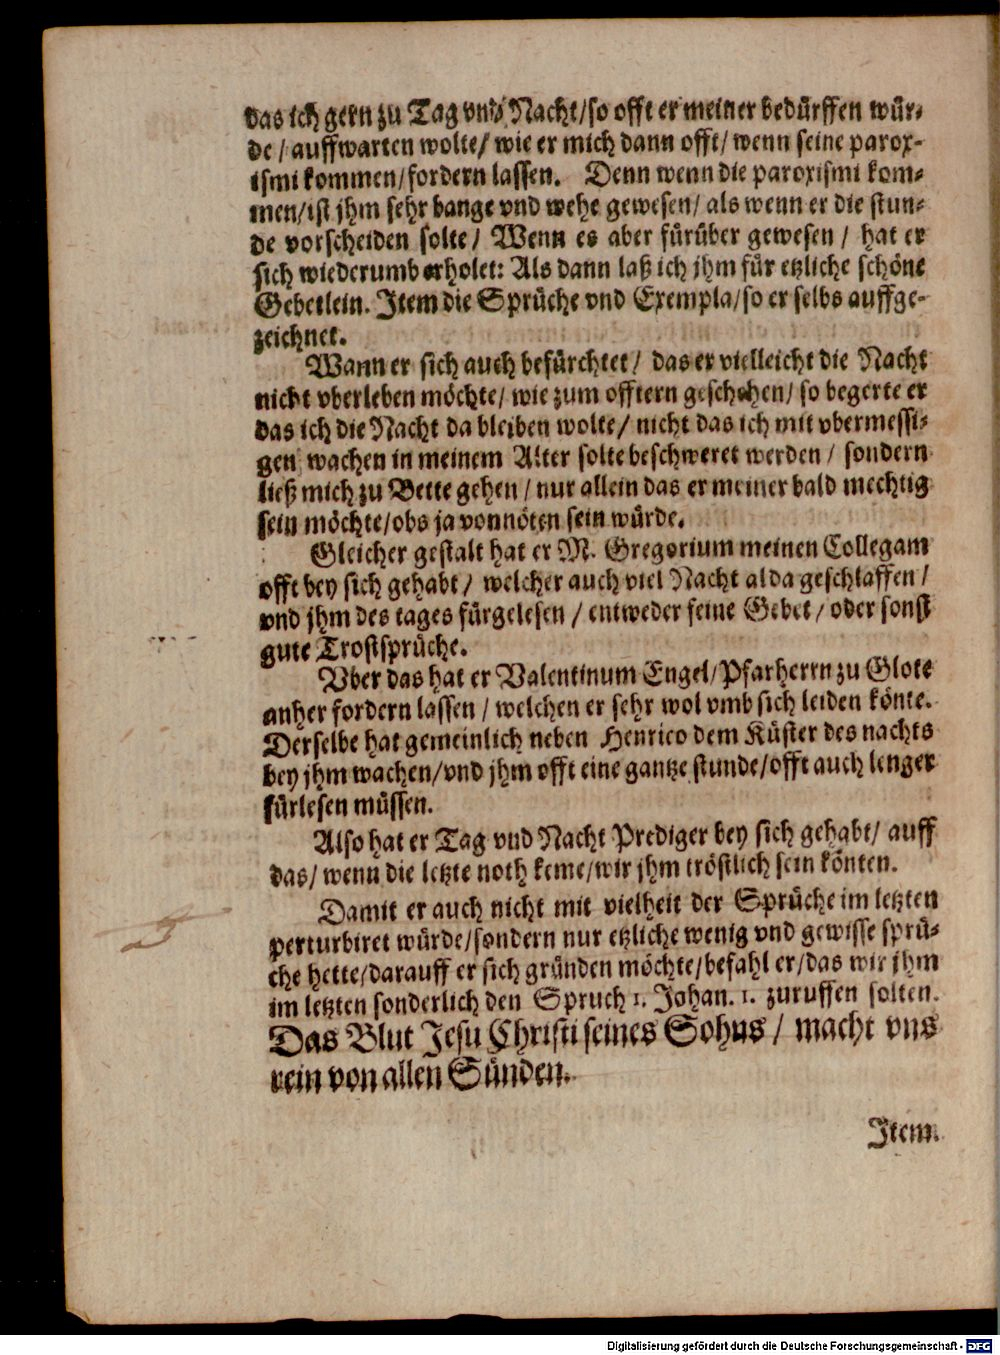 das ich gern zu Tag vnd Nacht/so offt er meiner bedürffen wür-
de / auffwarten wolte/ wie er mich dann offt/ wenn seine parox-
ismi kommen/fordern lassen. Denn wenn die paroxismi kom-
men/ist jhm sehr bange vnd wehe gewesen/ als wenn er die stun-
de vorscheiden solte/ Wenn es aber fürüber gewesen / hat er
sich wiederumb erholet: Als dann laß ich jhm für etzliche schöne
Gebetlein. Item die Sprüche vnd Exempla/so er selbs auffge-
zeichnet.
Wann er sich auch befürchtet/ das er vielleicht die Nacht
nicht vberleben möchte/ wie zum offtern geschehen/ so begerte er
das ich die Nacht da bleiben wolte/ nicht das ich mit vbermessi-
gen wachen in meinem Alter solte beschweret werden / sondern
ließ mich zu Bette gehen / nur allein das er meiner bald mechtig
sein möchte/obs ja vonnöten sein würde.
Gleicher gestalt hat er M. Gregorium meinen Collegam
offt bey sich gehabt/ welcher auch viel Nacht alda geschlaffen /
vnd jhm des tages fürgelesen / entweder seine Gebet / oder sonst
gute Trostsprüche.
Vber das hat er Valentinum Engel/Pfarherrn zu Glote
anher fordern lassen / welchen er sehr wol vmb sich leiden könte.
Derselbe hat gemeinlich neben Henrico dem Küster des nachts
bey jhm wachen/vnd jhm offt eine gantze stunde/offt auch lenger
fürlesen müssen.
Also hat er Tag vnd Nacht Prediger bey sich gehabt/ auff
das/ wenn die letzte noth keme/wir jhm tröstlich sein könten.
Damit er auch nicht mit vielheit der Sprüche im letzten
perturbiret würde/sondern nur etzliche wenig vnd gewisse sprü-
che hette/darauff er sich gründen möchte/befahl er/das wir jhm
im letzten sonderlich den Spruch 1. Johan. 1. zuruffen solten.
Das Blut Jesu Christi seines Sohns / macht vns
rein von allen Sünden.
Item.
Digitalisierung gefördert durch die Deutsche Forschungsgemeinschaft - DFG